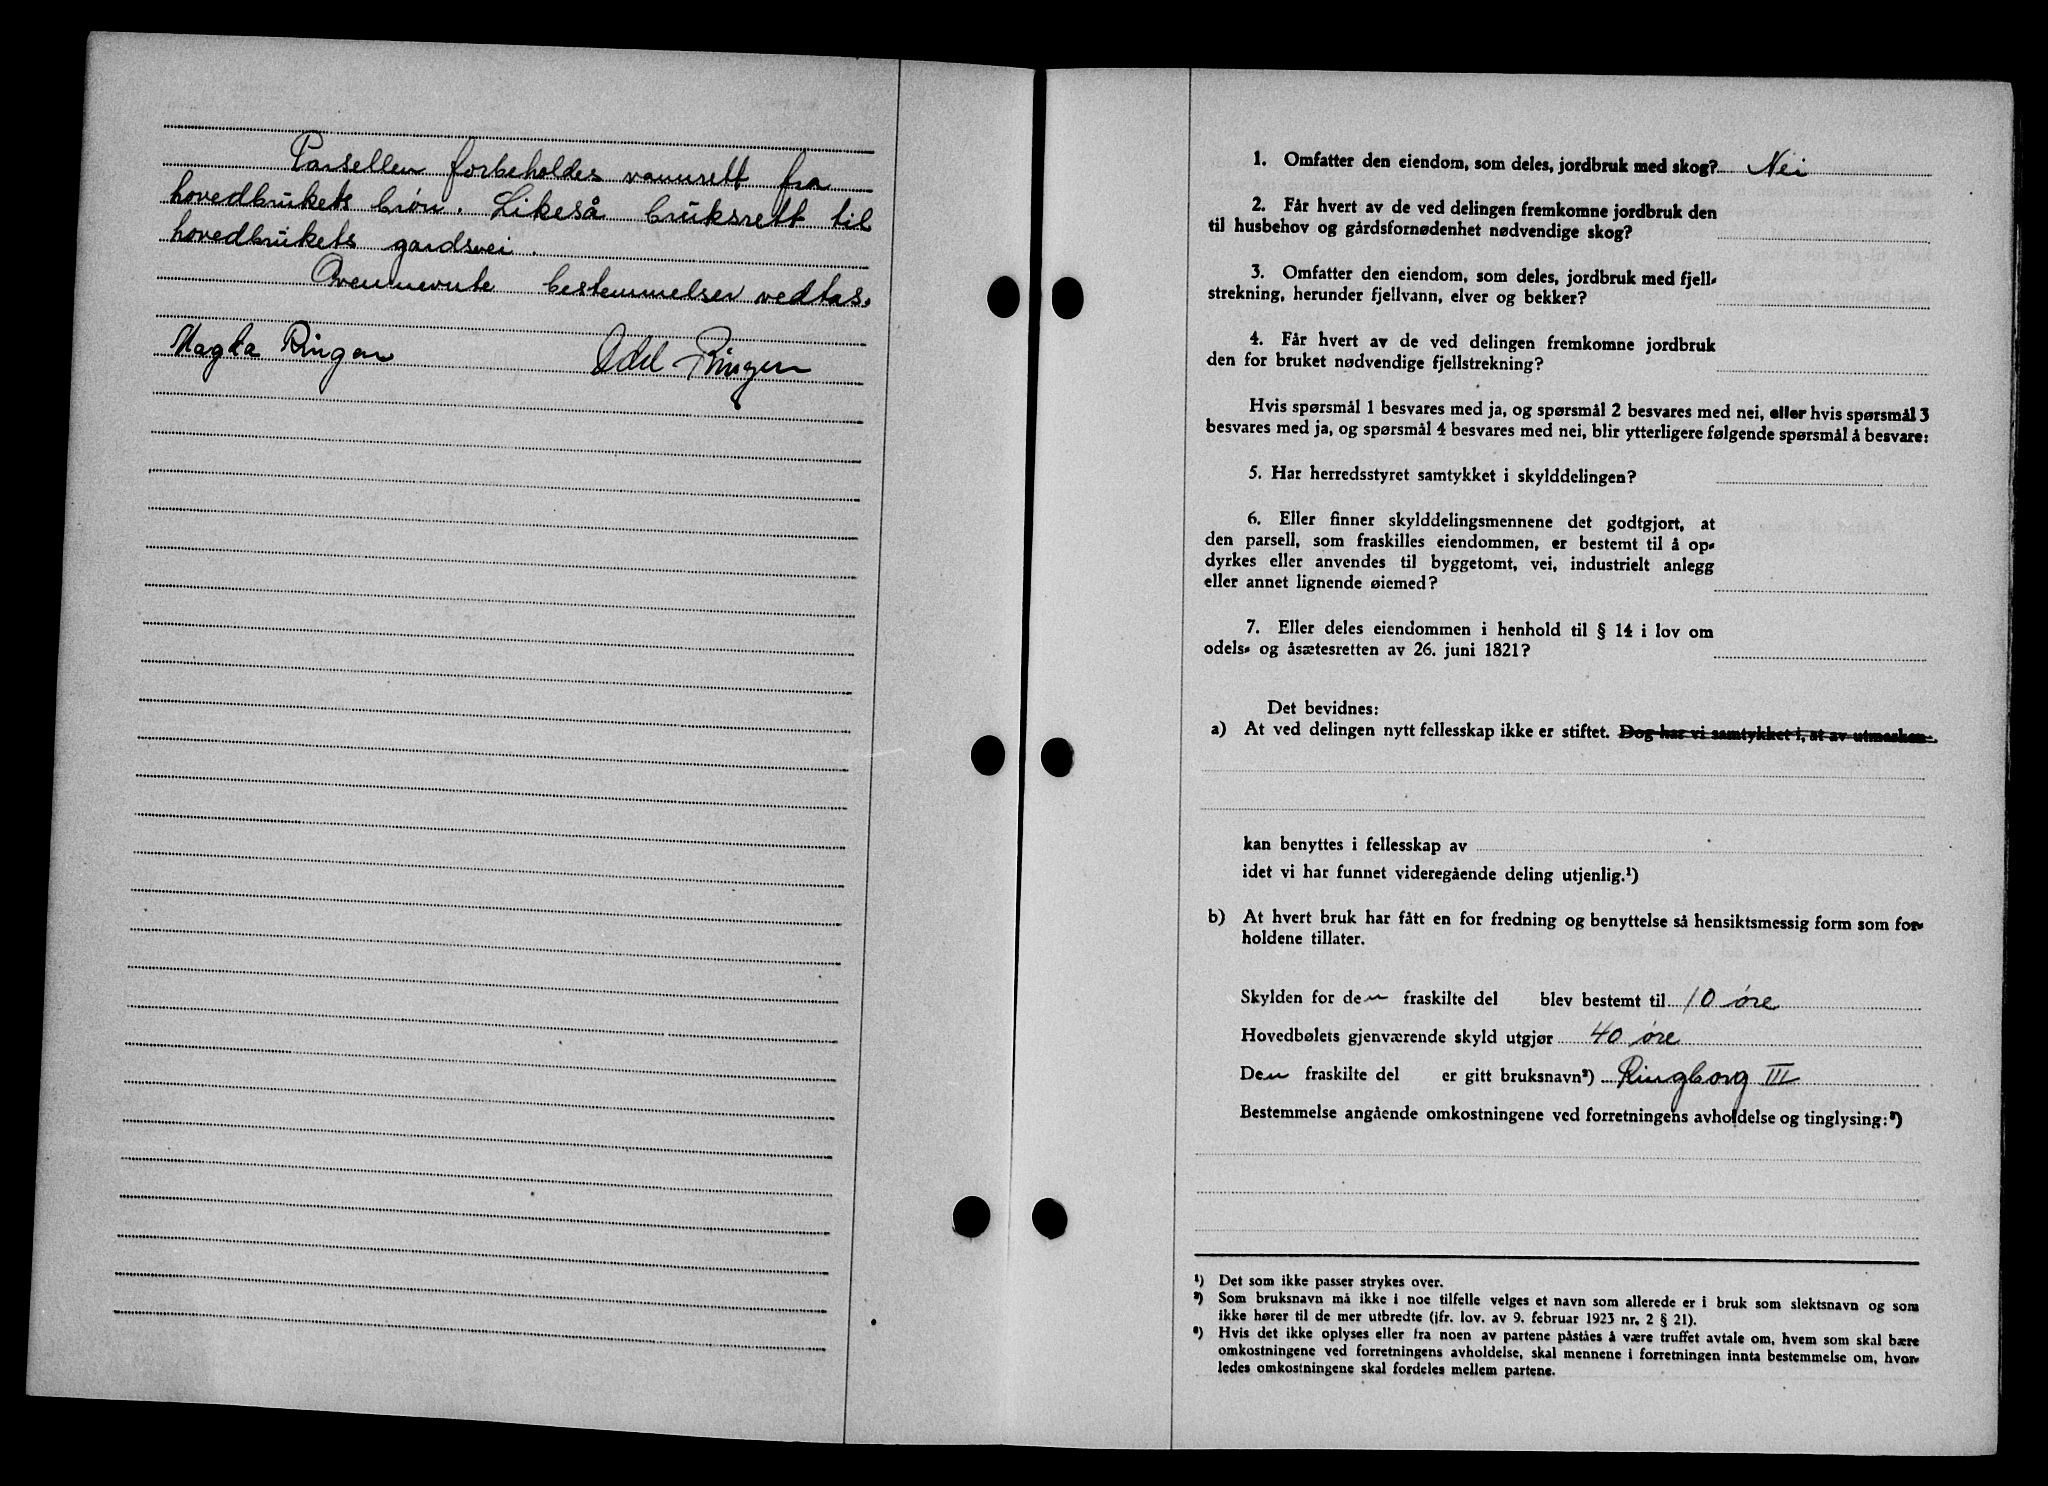 Parsellen forbeholdes vannrett fra
hovedbrukets brøn. Likeså bruksrett til
hovedbrukets gardsvei.
Ovennevnte bestemmelser vedtas.
Magda Ringen Odd Ringen
1. Omfatter den eiendom, som deles, jordbruk med skog? Nei
2. Får hvert av de ved delingen fremkomne jordbruk den
til husbehov og gårdsfornødenhet nødvendige skog?
3. Omfatter den eiendom, som deles, jordbruk med fjell-
strekning, herunder fjellvann, elver og bekker?
4. Får hvert av de ved delingen fremkomne jordbruk
den for bruket nødvendige fjellstrekning?
Hvis spørsmål 1 besvares med ja, og spørsmål 2 besvares med nei, eller hvis spørsmål 3
besvares med ja, og spørsmål 4 besvares med nei, blir ytterligere følgende spørsmål å besvare:
5. Har herredsstyret samtykket i skylddelingen?
6. Eller finner skylddelingsmennene det godtgjort, at
den parsell, som fraskilles eiendommen, er bestemt til å op-
dyrkes eller anvendes til byggetomt, vei, industrielt anlegg
eller annet lignende øiemed?
7. Eller deles eiendommen i henhold til § 14 i lov om
odels- og åsætesretten av 26. juni 1821?
Det bevidnes:
a) At ved delingen nytt fellesskap ikke er stiftet. Dog har vi samtykket i, at av utmarken
kan benyttes i fellesskap av
idet vi har funnet videregående deling utjenlig.¹)
b) At hvert bruk har fått en for fredning og benyttelse så hensiktsmessig form som for-
holdene tillater.
Skylden for den fraskilte del blev bestemt til 10 øre
Hovedbølets gjenværende skyld utgjør 40 øre
Den fraskilte del er gitt bruksnavn²) Ringborg III
Bestemmelse angående omkostningene ved forretningens avholdelse og tinglysing:³)
¹) Det som ikke passer strykes over.
²) Som bruksnavn må ikke i noe tilfelle velges et navn som allerede er i bruk som slektsnavn og som
ikke hører til de mer utbredte (jfr. lov. av 9. februar 1923 nr. 2 § 21).
³) Hvis det ikke oplyses eller fra noen av partene påståes å være truffet avtale om, hvem som skal bære
omkostningene ved forretningens avholdelse, skal mennene i forretningen innta bestemmelse om, hvor-
ledes omkostningene skal fordeles mellem partene.